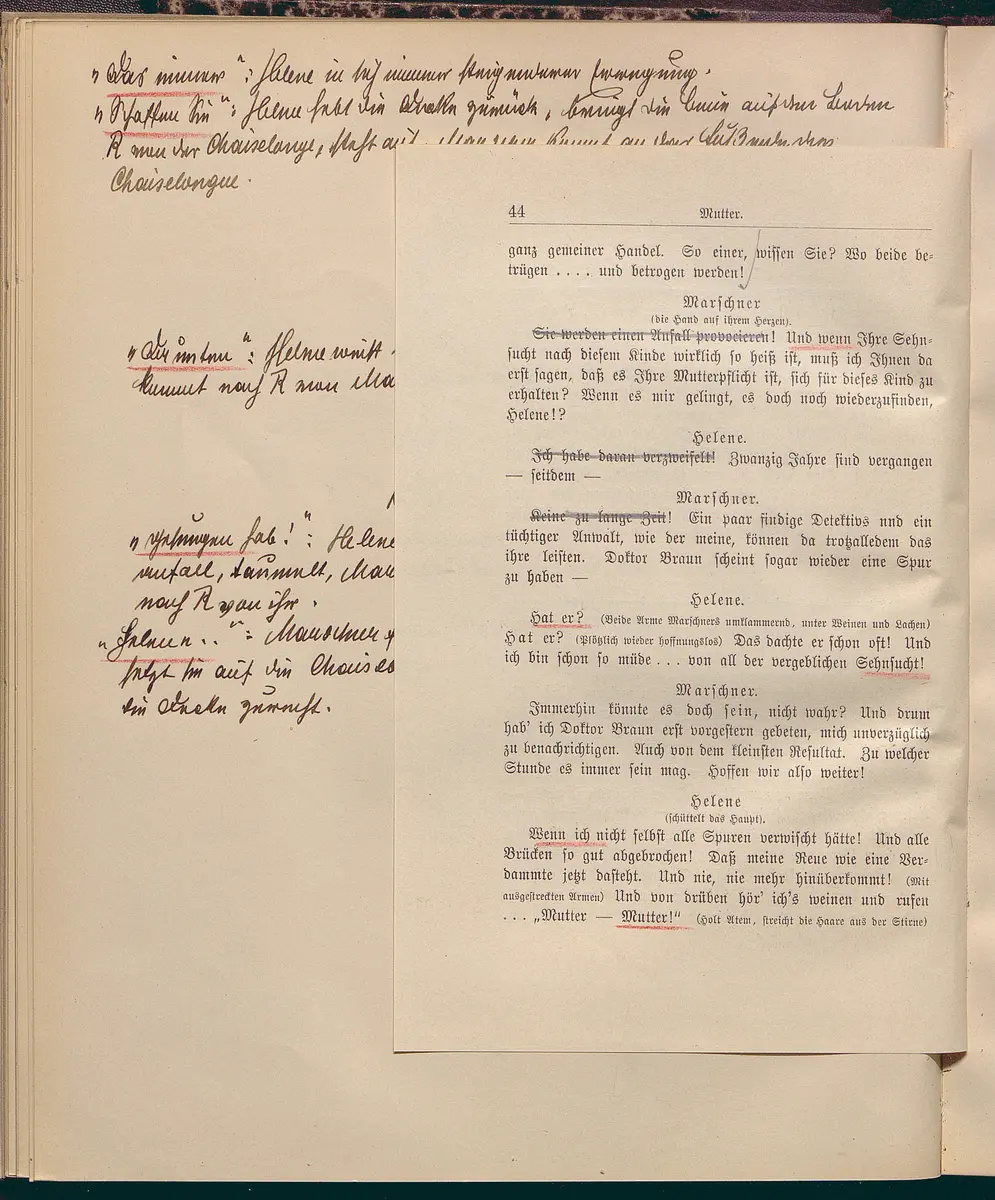 „Das immer“: Helene in sich immer steigenderer Erregung.
„Schaffen Sie“: Helene hebt die Decke zurück, bringt die Beine auf den Boden
R von der Chaiselonge, steht auf. Marschner kommt an das Fußende der
Chaiselongue.
„Drunten“: Helene winkt
kommt nach R von Ma
„gesungen hab!“: Helene
anfall, taumelt, Mar
nach R von ihr.
„Helene..“: Marschner
setzt sie auf die Chaiselo
die Decke zurecht.
44 Mutter.
ganz gemeiner Handel. So einer, wissen Sie? Wo beide be-
trügen .... und betrogen werden!
Marschner
(die Hand auf ihrem Herzen).
Sie werden einen Anfall provocieren! Und wenn Ihre Sehn-
sucht nach diesem Kinde wirklich so heiß ist, muß ich Ihnen da
erst sagen, daß es Ihre Mutterpflicht ist, sich für dieses Kind zu
erhalten? Wenn es mir gelingt, es doch noch wiederzufinden,
Helene!?
Helene.
Ich habe daran verzweifelt! Zwanzig Jahre sind vergangen
— seitdem —
Marschner.
Keine zu lange Zeit! Ein paar findige Detektivs und ein
tüchtiger Anwalt, wie der meine, können da trotzalledem das
ihre leisten. Doktor Braun scheint sogar wieder eine Spur
zu haben —
Helene.
Hat er? (Beide Arme Marschners umklammernd, unter Weinen und Lachen)
Hat er? (Plötzlich wieder hoffnungslos) Das dachte er schon oft! Und
ich bin schon so müde ... von all der vergeblichen Sehnsucht!
Marschner.
Immerhin könnte es doch sein, nicht wahr? Und drum
hab' ich Doktor Braun erst vorgestern gebeten, mich unverzüglich
zu benachrichtigen. Auch von dem kleinsten Resultat. Zu welcher
Stunde es immer sein mag. Hoffen wir also weiter!
Helene
(schüttelt das Haupt).
Wenn ich nicht selbst alle Spuren verwischt hätte! Und alle
Brücken so gut abgebrochen! Daß meine Reue wie eine Ver-
dammte jetzt dasteht. Und nie, nie mehr hinüberkommt! (Mit
ausgestreckten Armen) Und von drüben hör' ich's weinen und rufen
... „Mutter — Mutter!“ (Holt Atem, streicht die Haare aus der Stirne)